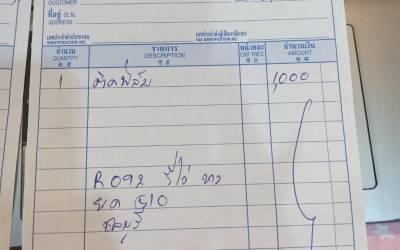 CUSTOMER
ที่อยู่ 住址
ADDRESS
เลขประจำตัวประชาชน
IDENTIFICATION NO.
เลขประจำตัวผู้เสียภาษีอากร
TAX IDENTIFICATION NO.
จำนวน รายการ หน่วยละ จำนวนเงิน
QUANTITY DESCRIPTION UNIT PRICE AMOUNT
数量 貨名 價錢 銀額
1 ติดฟิล์ม 1,000
R092
510
ชลบุรี